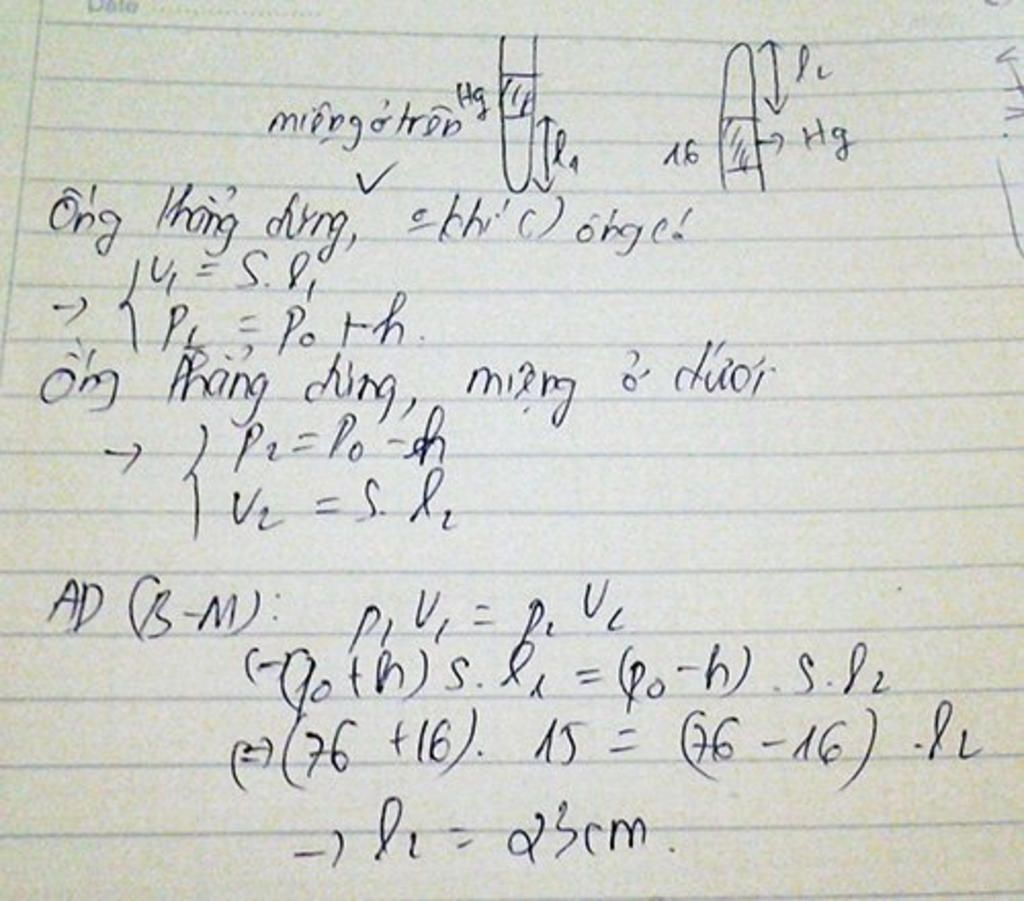 Date
Hg
miệng ở trên
l₁
l₂
16
Hg
Ống thẳng đứng, khí () ống c!
→ { V₁ = S. l₁
P₁ = P₀ + h.
Ống thẳng đứng, miệng ở dưới
→ { P₂ = P₀ - h
V₂ = S. l₂
AD (B-M): P₁V₁ = P₂V₂
(→(p₀ + h) S. l₁ = (p₀ - h) . S. l₂
(=>(76 + 16). 15 = (76 - 16) . l₂
→ l₂ = 23cm.